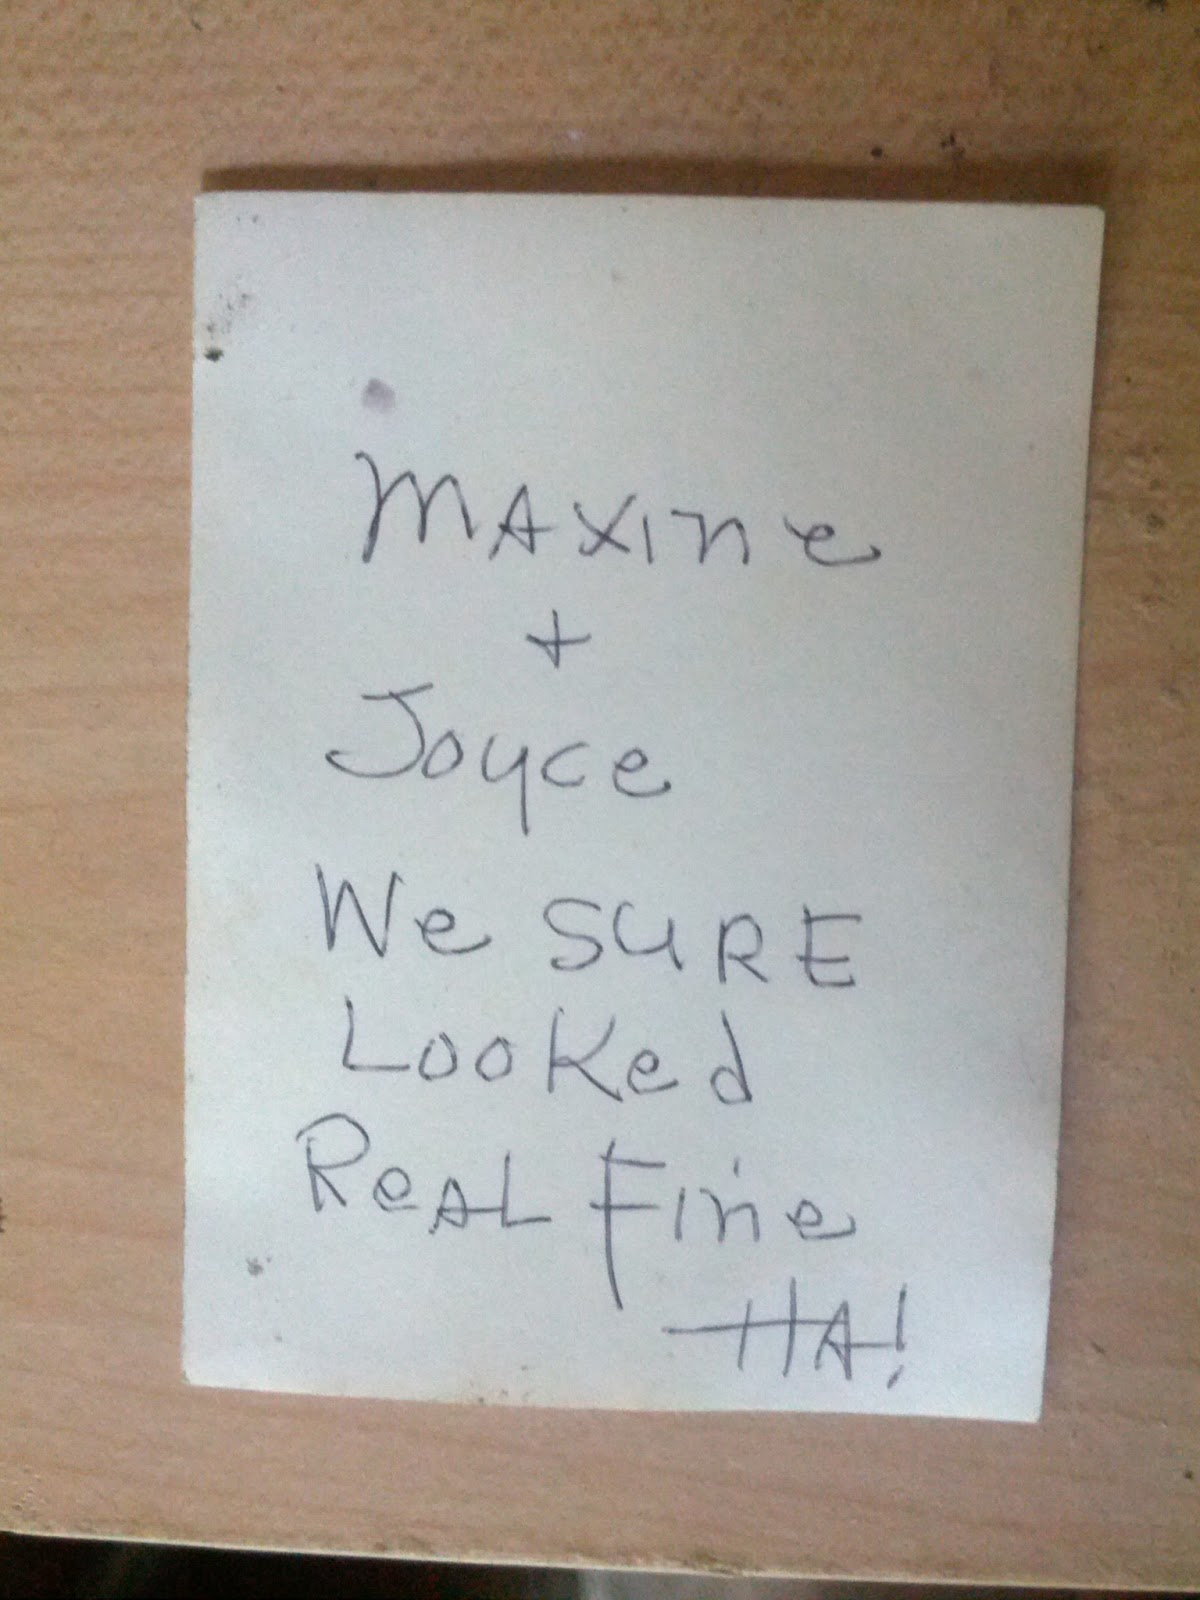 MAXINe
+
Joyce
We SURE
Looked
ReAL Fine
HA!